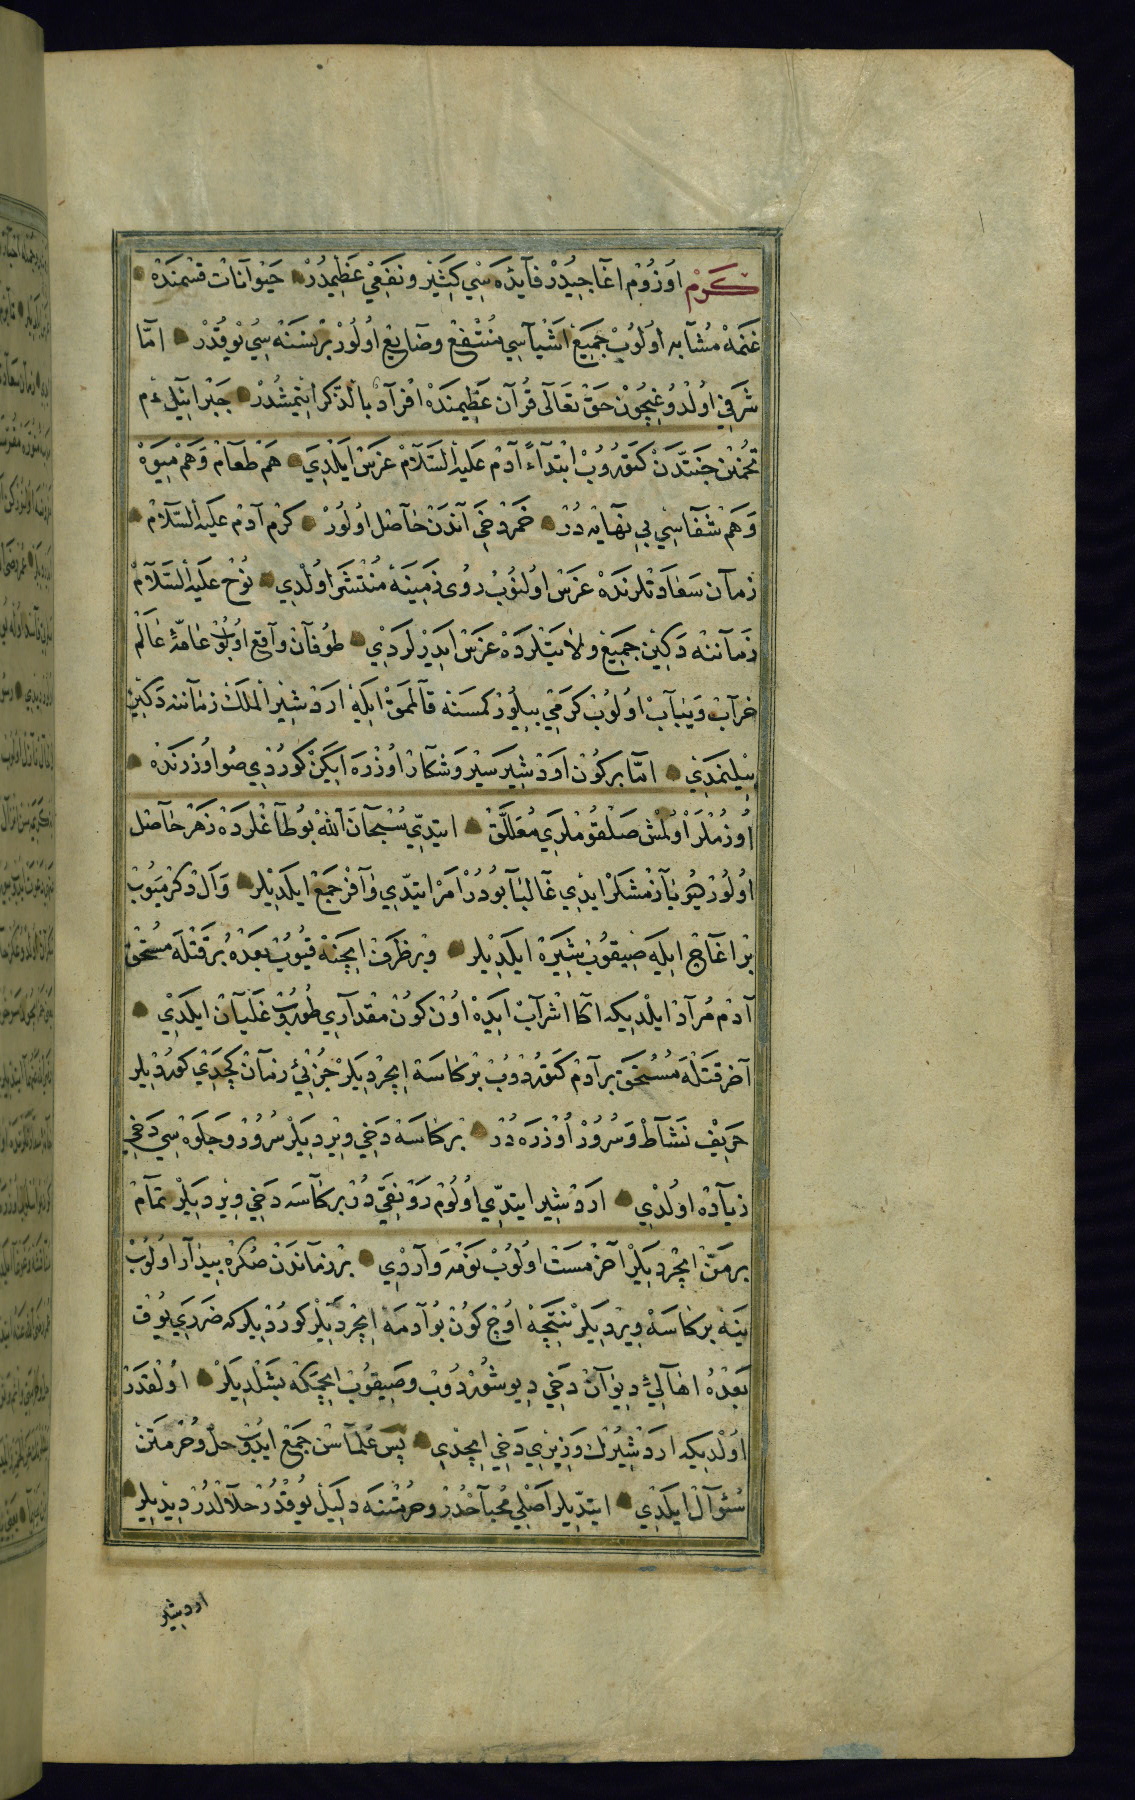 كَرْم اوُزُوُم اغَاجِيدُرْ فَآيدَه سِي كَثِير ونَفعِي عَظِيمدُرْ حَيْوانَات قِسْمِندَه
غَنَمَه مُشَابِه اوُلُوبْ جَمِيع اَشْيَآسِي مُنتَفع وضَايع اوُلُورْ بِرنَسْنَه سِي يُوقدُرْ امّا
شَرَفِي اوُلدُوغِيچُون حَقّ تَعَالَى قُرآن عَظِيمندَه اِفْرَاد بِالذّكر اِيتمِشدُرْ جَبْرائيل ع م
تُخمِن جَنّتدَنْ كَتوُرُوبْ اِبْتِدَآءً آدَم عَلَيهِ السَّلَامْ غَرَسْ اَيلَدِي هَمْ طَعَام وَهَمْ مِيوَه
وَهَم شَفَاسِي بِي نِهَايَه دُرْ خَمردَخِي آندَنْ حَاصِل اوُلُورْ كَرْم آدَم عَلَيهِ السَّلَامْ
زمَان سَعَادَتْلرِندَه غَرَس اوُلنُوبْ رُوى زَمِينَه مُنْتَشَر اوُلدِي نوُح عَلَيهِ السَّلَامْ
زَمَاننَه دَكِين جَمِيع ولَايَتلردَه غَرَس اِيدَرلردِي طوُفَان وَاقِع اوُلُوبْ عَامّهء عَالَم
خَرَاب وَيَبَاب اوُلُوبْ كَرمِي بِيلُورْ كِمسَنَه قَالمَمَقْ اِيلَه اَردَشِير المَلِك زمَاننَه دَكِين
بِيلِنمَدِي امّا بركُون اَردَشِير سَير وَشكَار اوُزرَه اِيكَنْ كورْدِي صُو اوُزرِندَه
اوُزُملَرْ اوُلمُش صَلقوُملَرِي مُعَلَّقْ اِيتدِي سُبْحَانَ الله بُو طَاغلردَه زَهر حَاصِل
اوُلُورْ هِيُونَازمِشكَرْ ايدِي غَالبَا بُودُرْ اَمر اِيتدِي وَافر جَمع اَيلَدِيلر وَآل دكرميُوب
بر اغَاج اِيلَه صِيقوُب شِيرَه اَيلَدِيلر وبر ظَرف اِيچنَه قيُوبْ بَعدَه برقَتلَه مُستَحَق
آدَم مُرَاد اَيلدِيكه اكَا اِشرَاب اِيدَه اوُن كُون مقدَارِي طوُرُوب غَليَان اَيلَدِي
آخَر قَتلَه مُستَحَق برآدَم كَتوُرْدُوبْ بر كَاسَه اِيچردِيلَرْ جُزئِي زمَان كَچدِي كوردِيلر
حَرِيف نَشَاط وَسُرُور اوُزرَه دُرْ بر كَاسَه دَخِي وِيردِيلَرْ سُرُور وَجَلوَه سِي دَخِي
زيَادَه اوُلدِي اَردَشِير اِيتدِي اوُلُوم رَونقِي دُر بر كَاسَه دَخِي وِيردِيلَرْ تمَام
برمَنّ اِيچردِيلَرْ آخَر مَسْت اوُلُوبْ نَومَه وَاردِي بر زمَاندَن صُكره بِيدَار اوُلُوبْ
يِنَه بر كَاسَه وِيردِيلَرْ نَتِيجَه اوُچ كُون بُو آدمَه اِيچردِيلَر كوردِيلركه ضَررِي يُوق
بَعدَه اهَالئ دِيوَان دَخِي دِيوشُوردُوب وصِيقوُب اِيچمَكه بَشلَديلَرْ اوُلقَدَرْ
اوُلدِيكه اَردَشِيرُك وَزِيرِي دَخِي اِيچدِي پَس عُلَمَاسْن جَمع ايدُوب حلّ وحُرمَتِن
سُؤَال اَيلَدِي اِيتدِيلر اَصلِي مُبَاحدُرْ وحُرمتنَه دلِيل يُوقدُرْ حلَالدُرْ دِيديلر
اردشير